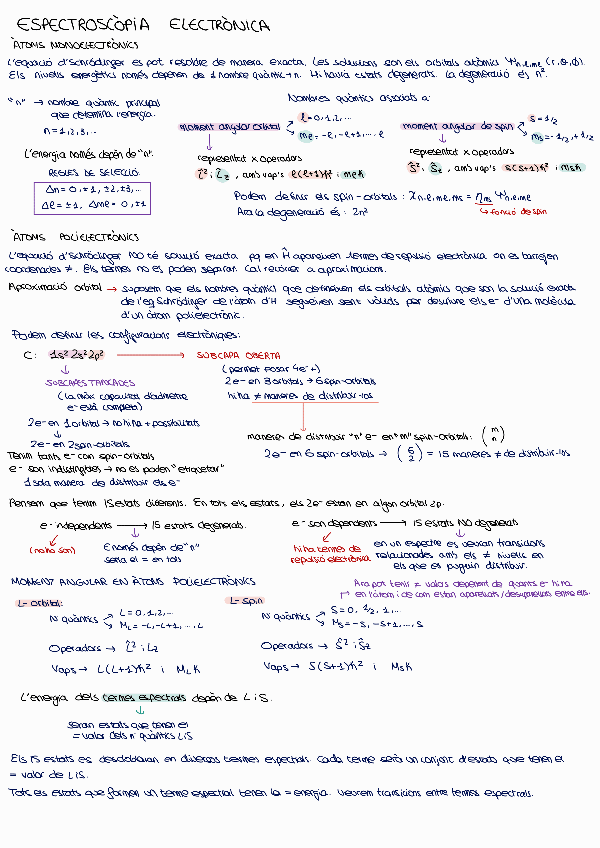 ESPECTROSCÒPIA ELECTRÒNICA
ÀTOMS MONOELECTRÒNICS
L'equació d'Schrödinger es pot resoldre de manera exacta. Les solucions són els orbitals atòmics Ψn,l,ml (r,θ,φ).
Els nivells energètics només depenen de 1 nombre quàntic → n. Hi haurà estats degenerats. La degeneració és n².
"n" → nombre quàntic principal
que determina l'energia.
n = 1,2,3,...
L'energia només depèn de "n".
REGLES DE SELECCIÓ:
Δn = 0, ±1, ±2, ±3,...
Δl = ±1, Δml = 0, ±1
Nombres quàntics associats a:
moment angular orbital
l = 0,1,2,...
ml = -l, -l+1, ... l
representat x operadors
L̂² i L̂z, amb vap's l(l+1)ħ² i mlħ
moment angular de spin
s = 1/2
ms = -1/2, +1/2
representat x operadors
Ŝ² i Ŝz, amb vap's s(s+1)ħ² i msħ
Podem definir els spin-orbitals: χn,l,ml,ms = ηms Ψn,l,ml
Ara la degeneració és: 2n²
funció de spin
ÀTOMS POLIELECTRÒNICS
L'equació d'Schrödinger NO té solució exacta pq en Ĥ apareixen termes de repulsió electrònica on es barrejen
coordenades ≠. Els termes no es poden separar. Cal recórrer a aproximacions.
Aproximació orbital → suposem que els nombres quàntics que defineixen els orbitals atòmics que són la solució exacta
de l'eq Schrödinger de l'àtom d'H segueixen sent vàlids per descriure els e- d'una molècula
d'un àtom polielectrònic.
Podem definir les configuracions electròniques:
C: 1s² 2s² 2p² → SUBCAPA OBERTA
SUBCAPES TANCADES
(la màx capacitat d'admetre
e- està completa)
2e- en 1 orbital → no hi ha + possibilitats
2e- en 2 spin-orbitals
Tenim tants e- com spin-orbitals
e- són indistingibles → no es poden "etiquetar"
1 sola manera de distribuir els e-
(permet posar 4e- +)
2e- en 3 orbitals → 6 spin-orbitals
hi ha ≠ maneres de distribuir-los
maneres de distribuir "n" e- en "m" spin-orbitals: (m n)
2e- en 6 spin-orbitals → (6 2) = 15 maneres ≠ de distribuir-los
Pensem que tenim 15 estats diferents. En tots els estats, els 2e- estan en algún orbital 2p.
e- independents → 15 estats degenerats.
(no ho són)
E només depèn de "n"
seria el = en tots
e- són dependents → 15 estats NO degenerats
hi ha termes de
repulsió electrònica
en un espectre es veuran transicions
relacionades amb els ≠ nivells en
els que es puguin distribuir.
MOMENT ANGULAR EN ÀTOMS POLIELECTRÒNICS
Ara pot tenir ≠ valors depenent de quants e- hi ha
en l'àtom i de com estan aparellats/desaparellats entre ells.
L- orbital:
Nº quàntics
L = 0,1,2,...
ML = -L, -L+1, ..., L
Operadors → L̂² i L̂z
Vaps → L(L+1)ħ² i MLħ
L- spin
Nº quàntics
S = 0, 1/2, 1,...
MS = -S, -S+1, ..., S
Operadors → Ŝ² i Ŝz
Vaps → S(S+1)ħ² i MSħ
L'energia dels termes espectrals depèn de L i S.
seran estats que tenen el
= valor dels nº quàntics L i S
Els 15 estats es desdoblaran en diversos termes espectrals. Cada terme serà un conjunt d'estats que tenen el
= valor de L i S.
Tots els estats que formen un terme espectral tenen la = energia. Veurem transicions entre termes espectrals.